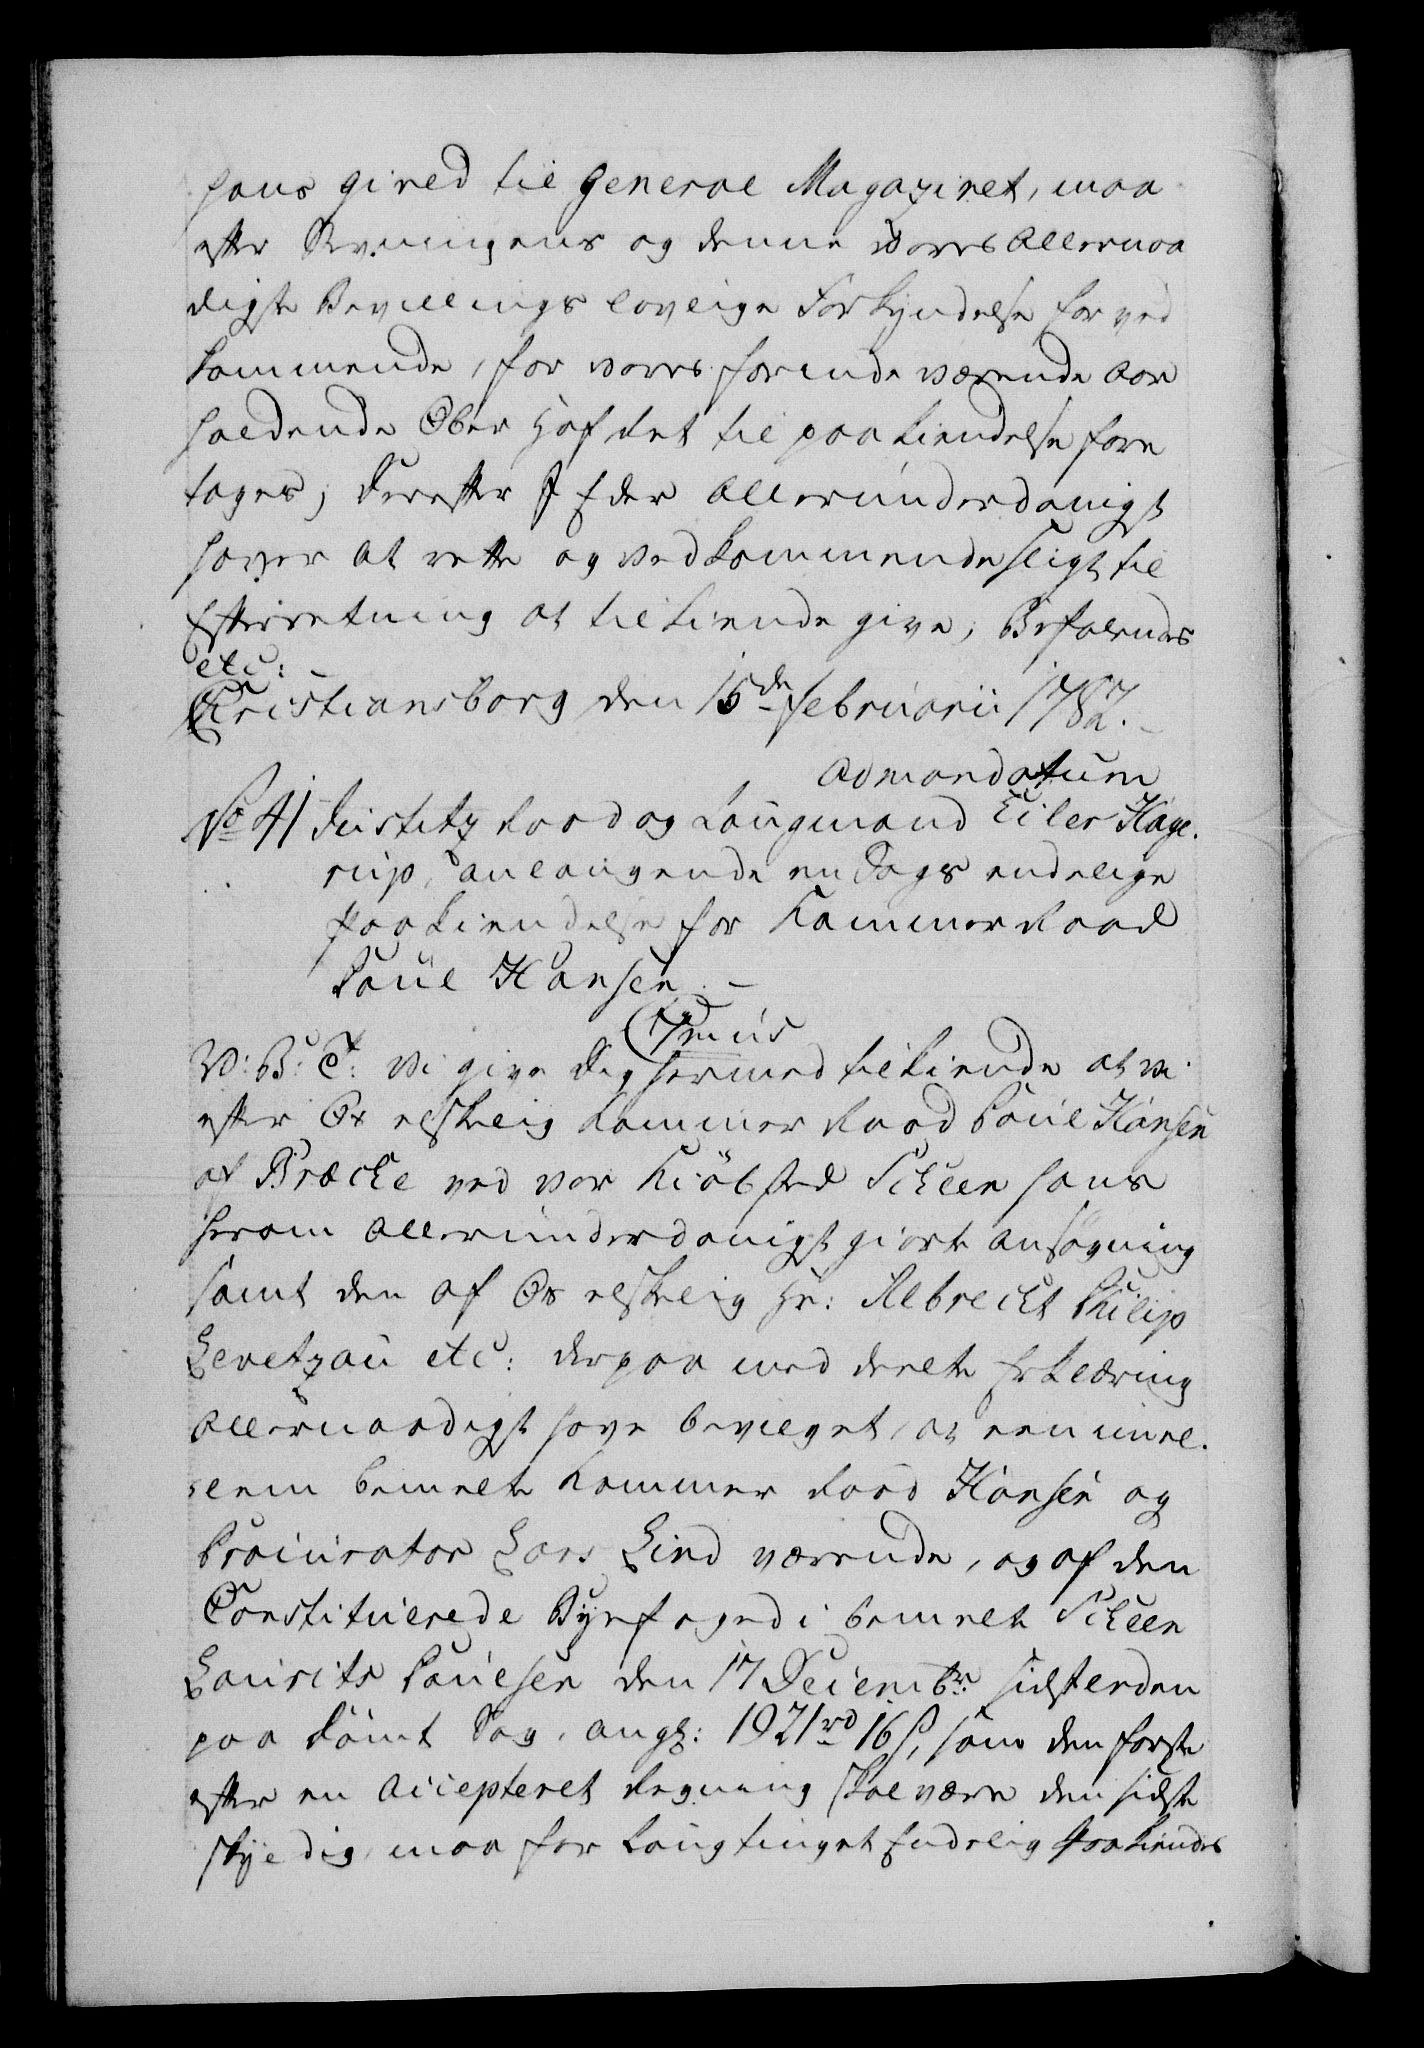 hans gield til General Magazinet, maa
efter Stevningens og denne vores Allernaa
digste Bevillings lovlige Forkyndelse for ved
kommende, for vores forinde værende Aar
holdende Ober Hof Ret til paakiendelse fore
tages; Derefter I Eder Allerunderdanigst
haver at rette og vedkommende sligt til
Efterretning at tilkiende give; Befalendes
etc:
Christiansborg den 15de Februarii 1782.
Admandatum
No 41 Justitz Raad og Laugmand Eiler Hage-
rup, anlangende en Sags endelige
paakiendelse for Kammer Raad
Poul Hansen. –
C7mus
V: B: T: Vi give dig hermed tilkiende at vi
efter Os elskelig Kammer Raad Poul Hansen
af Bræcke ved vor Kiöbsted Scheen hans
herom Allerunderdanigst giorte ansøgning
samt den af Os elskelig Hr: Albrecht Philip
Levetzau etc: derpaa meddeelte Erklæring
Allernaadigst have bevilget, at een imel-
lem bemelte Kammer Raad Hansen og
Procurator Lars Lind værende, og af den
Constituerede Byefoged i bemelte Scheen
Laurits Paulsen den 17 Decembr: sidstleden
paadömt Sag, angl: 1921 rd 16 s, som den første
efter en Accepteret Regning skal være den sidste
skyldig, maa for Laugtinget Endelig Paakiendes